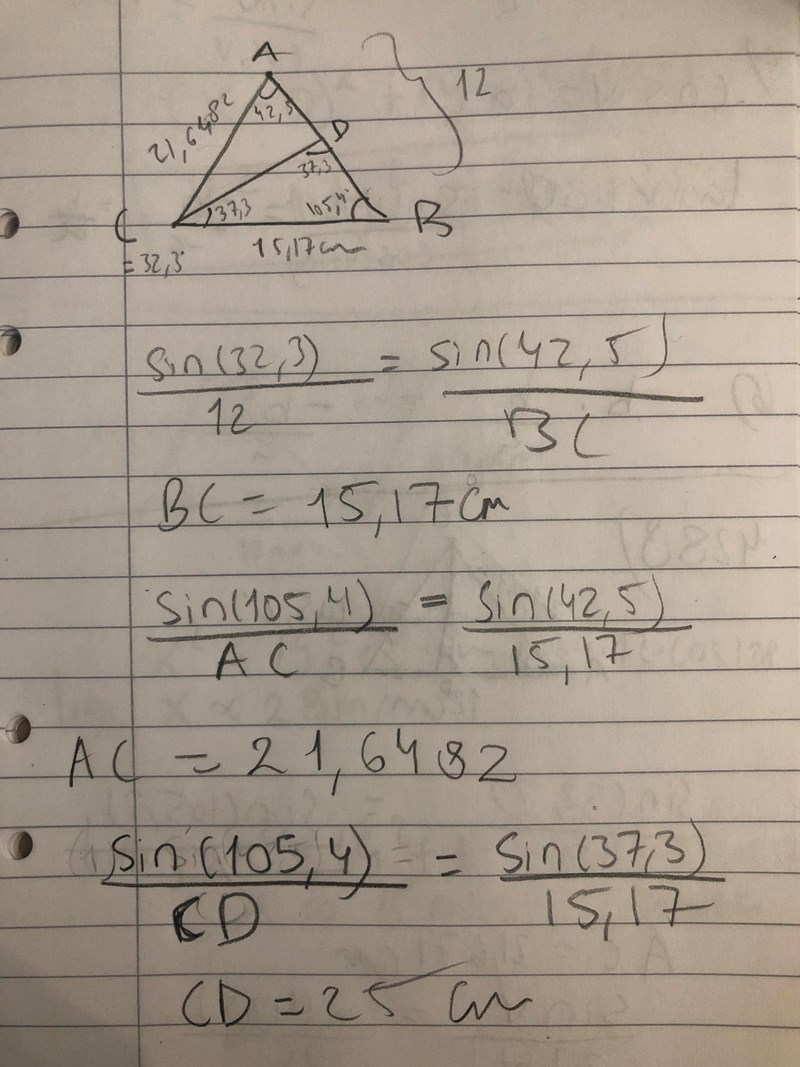 A
12
21,6482
42,5
D
37,3
C
37,3
105,4
B
= 32,3
15,17cm
sin(32,3) = sin(42,5)
12 BC
BC = 15,17cm
sin(105,4) = sin(42,5)
AC 15,17
AC = 21,6482
sin(105,4) = sin(37,3)
CD 15,17
CD = 25 cm